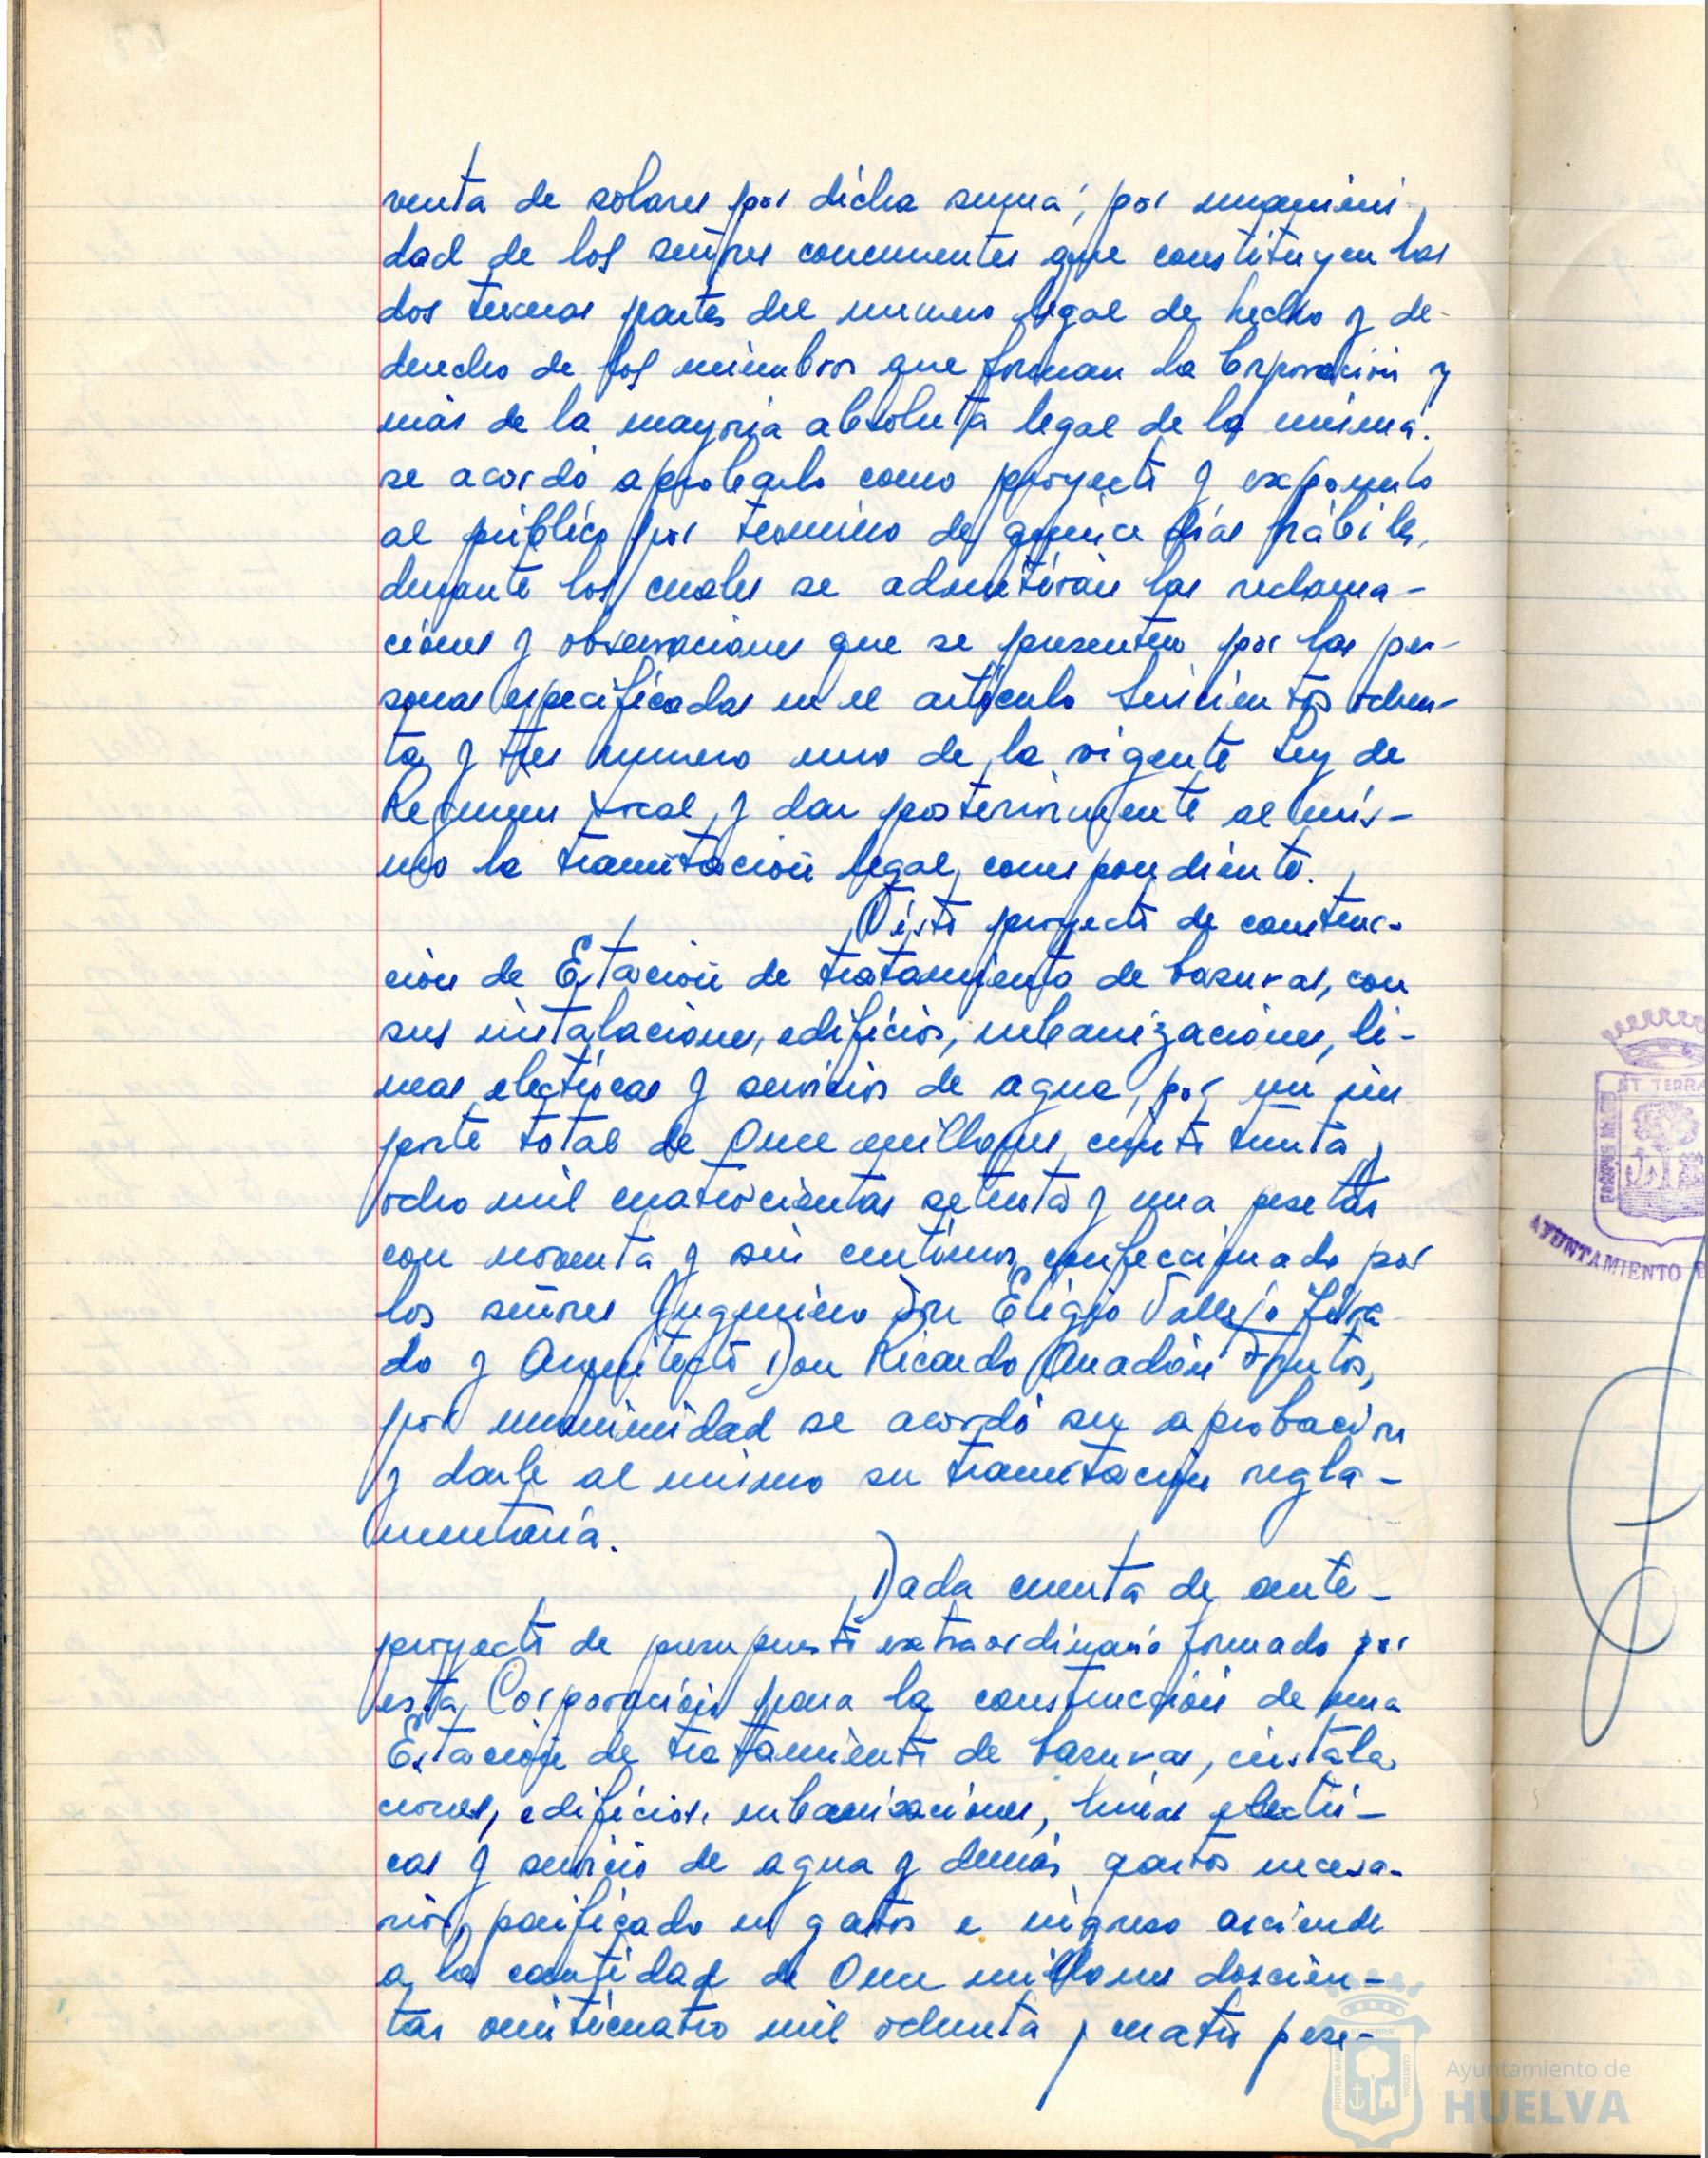 venta de solares por dicha suma; por unanimi-
dad de los señores concurrentes que constituyen las
dos terceras partes del numero legal de hecho y de
derecho de los miembros que forman la Corporación y
más de la mayoria absoluta legal de la misma,
se acordó aprobarlo como proyecto y exponerlo
al público por termino de quince días hábiles,
durante los cuales se admitirán las reclama-
ciones y observaciones que se presenten por las per-
sonas especificadas en el artículo seiscientos ochen-
ta y tres numero uno de la vigente Ley de
Regimen Local, y dar posteriormente al mis-
mo la tramitación legal correspondiente.
Visto proyecto de construc-
ción de Estación de tratamiento de basuras, con
sus instalaciones, edificios, urbanizaciones, li-
neas electricas y servicios de agua, por un im
porte total de Once millones ciento treinta y
ocho mil cuatrocientas setenta y una pesetas
con noventa y seis centimos, confeccionado por
los señores Ingeniero Don Eligio Vallejo
do y Arquitecto Don Ricardo Anadón Frutos,
por unanimidad se acordó su aprobación
y darle al mismo su tramitación regla-
mentaria.
Dada cuenta de ante-
proyecto de presupuesto extraordinario formado por
esta Corporación para la construcción de una
Estación de tratamiento de basuras, instala
ciones, edificios, urbanizaciones, lineas electri-
cas y servicio de agua y demás gastos necesa-
rios, parificado en gastos e ingreso asciende
a la cantidad de Once millones doscien-
tas veinticuatro mil ochenta y cuatro pese-
ET TERRA
PORTUS MARIS
AYUNTAMIENTO
Ayuntamiento de
HUELVA